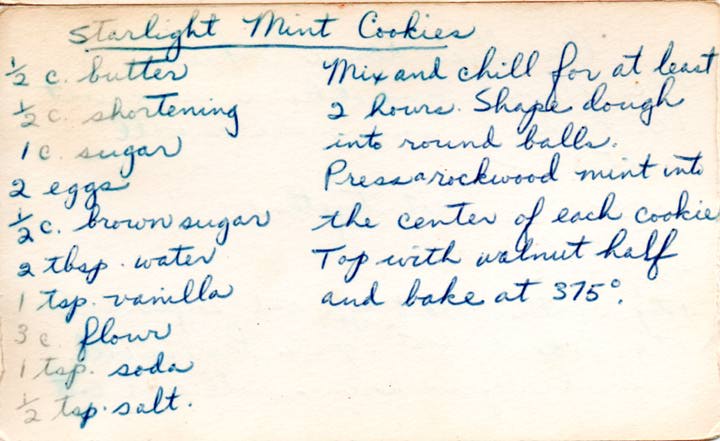 Starlight Mint Cookies
½ c. butter
½ c. shortening
1 c. sugar
2 eggs
½ c. brown sugar
2 tbsp. water
1 tsp. vanilla
3 c. flour
1 tsp. soda
½ tsp. salt.
Mix and chill for at least
2 hours. Shape dough
into round balls.
Press a rockwood mint into
the center of each cookie
Top with walnut half
and bake at 375°.